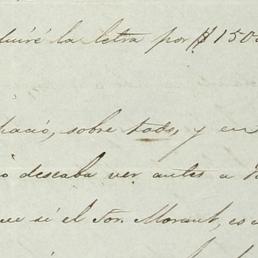 la letra por $ 150
sobre todo, y en
deseaba ver antes a
que si el Sor. Morant, es